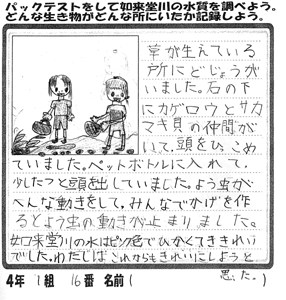 パックテストをして如来堂川の水質を調べよう。
どんな生き物がどんな所にいたか記録しよう。
草が生えている
所にどじょうが
いました。石の下
にカゲロウとサカ
マキ貝の仲間が
いて、頭をひっこめ
ていました。ペットボトルに入れて、
少したつと頭を出していました。よう虫が
へんな動きをして、みんなでかげを作
るとよう虫の動きが止まりました。
如来堂川の水はピンク色でひかくてききれい
でした。わたしは これからもきれいにしようと
思った。
4年 1組 16番 名前(
)